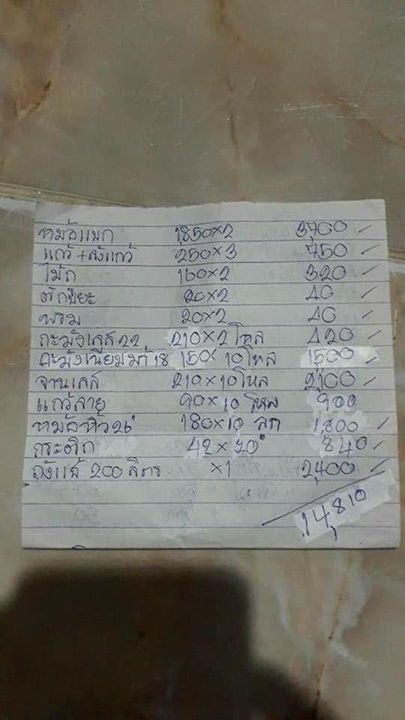 หม้อแขก 1850×2 3700 ✓
แก้ว+ลังแก้ว 250×3 750 ✓
ไม้ถู 160×2 320 ✓
ตักขยะ 20×2 40 ✓
พรม 20×2 40 ✓
กะมังเลส 22 210×2 โหล 420 ✓
กะมังเนียม 18 150×10 โหล 1500 ✓
จานเลส 210×10 โหล 2100 ✓
แก้วลาย 90×10 โหล 900
หม้อหิ้ว 180×10 ลูก 1,800 ✓
กระติก 42×20 840 ✓
ถังแช่ 200 ลิตร ×1 2,400 ✓
14,810